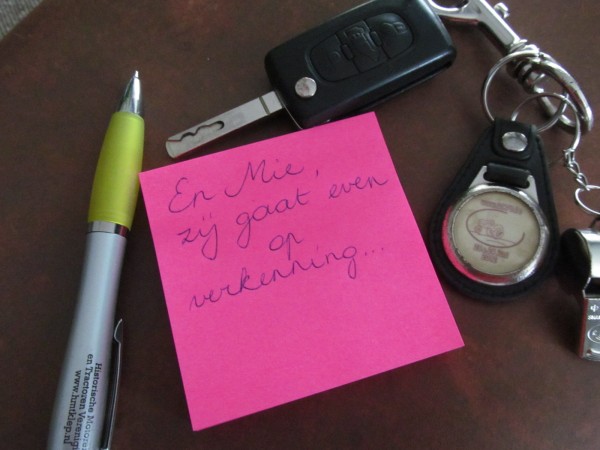 En Mie,
zij gaat even
op
verkenning...
Historische Motoren
en Tractoren Vereniging
www.hmtklep.nl